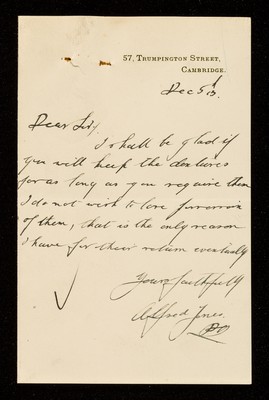 57, TRUMPINGTON STREET,
CAMBRIDGE.
Dec 5
Dear Sir,
I shall be glad if
you will keep the dentures
for as long as you require them
I do not wish to lose possession
of them, that is the only reason
I have for their return eventually
Yours faithfully
Alfred Jones.